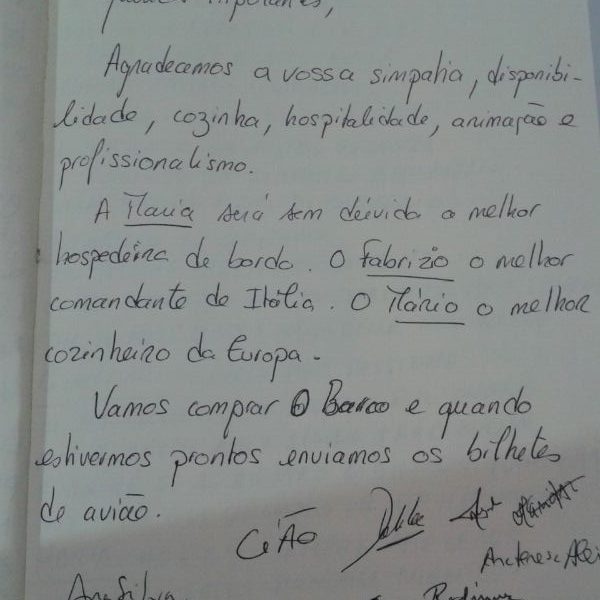 Agradecemos a vossa simpatia, disponibi-
lidade, cozinha, hospitalidade, animação e
profissionalismo.
A Maria será sem dúvida a melhor
hospedeira de bordo. O Fabrizio o melhor
comandante de Itália. O Mário o melhor
cozinheiro da Europa.
Vamos comprar O Barco e quando
estivermos prontos enviamos os bilhetes
de avião.
CIÃO
Ana Silva